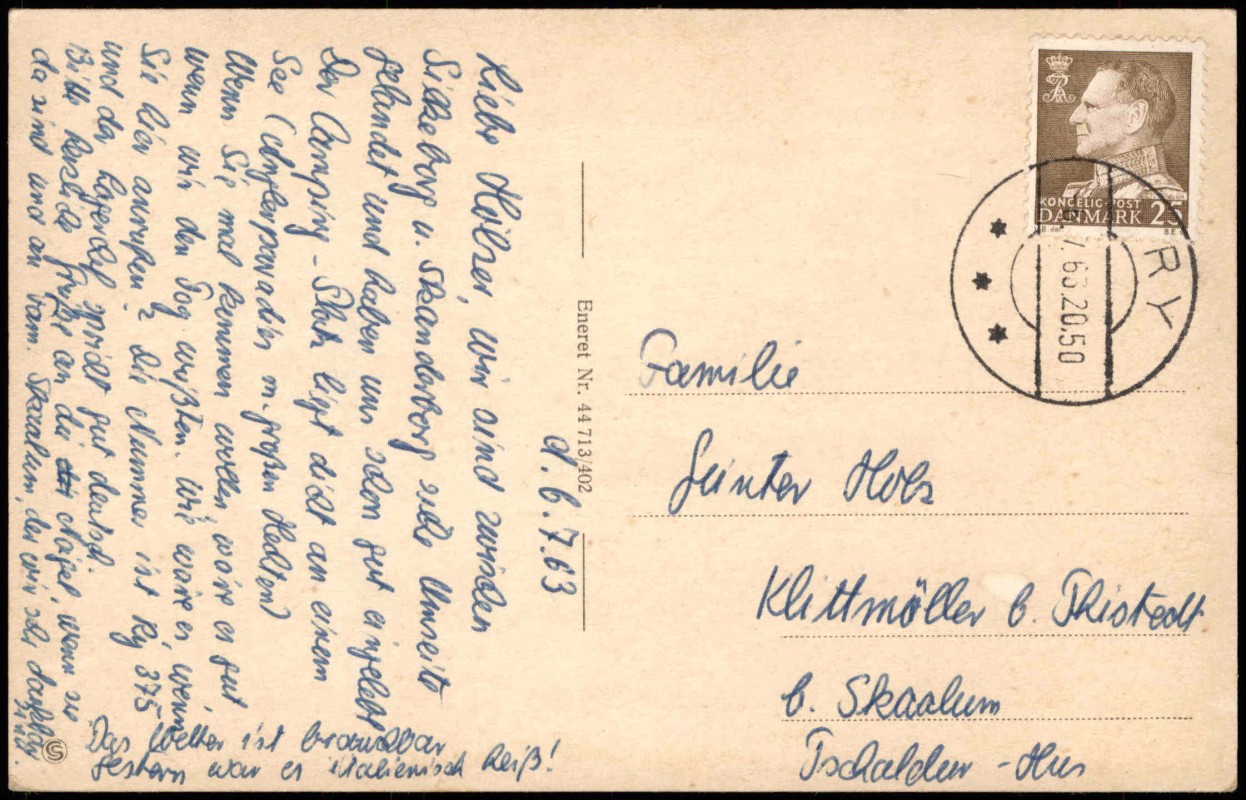 d. 6.7.63
Liebe Holser, wir sind zwischen
Silkeborg u. Skanderborg siehe Umseite
gelandet und haben uns schon gut eingelebt
Der Camping-Platz liegt dicht an einem
See (Anglerparadies m. großen Hechten)
Wenn Sie mal kommen wollen wäre es gut,
wenn wir den Tag wüßten. Wie wäre es wenn
Sie hier anrufen? Die Nummer ist Ry 375
und der Lagerchef spricht gut deutsch.
Bitte herzliche Grüße an die Nagel wenn sie
da sind und an Fam. Skaalum, der wir sehr dankbar
sind.
Das Wetter ist brauchbar
gestern war es italienisch heiß!
Eneret Nr. 44 713/402
KONGELIG POST
DANMARK 25
RY
7.63.20.50
Familie
Günter Holz
Klittmöller b. Thistedt
b. Skaalum
Tschalder-Hus